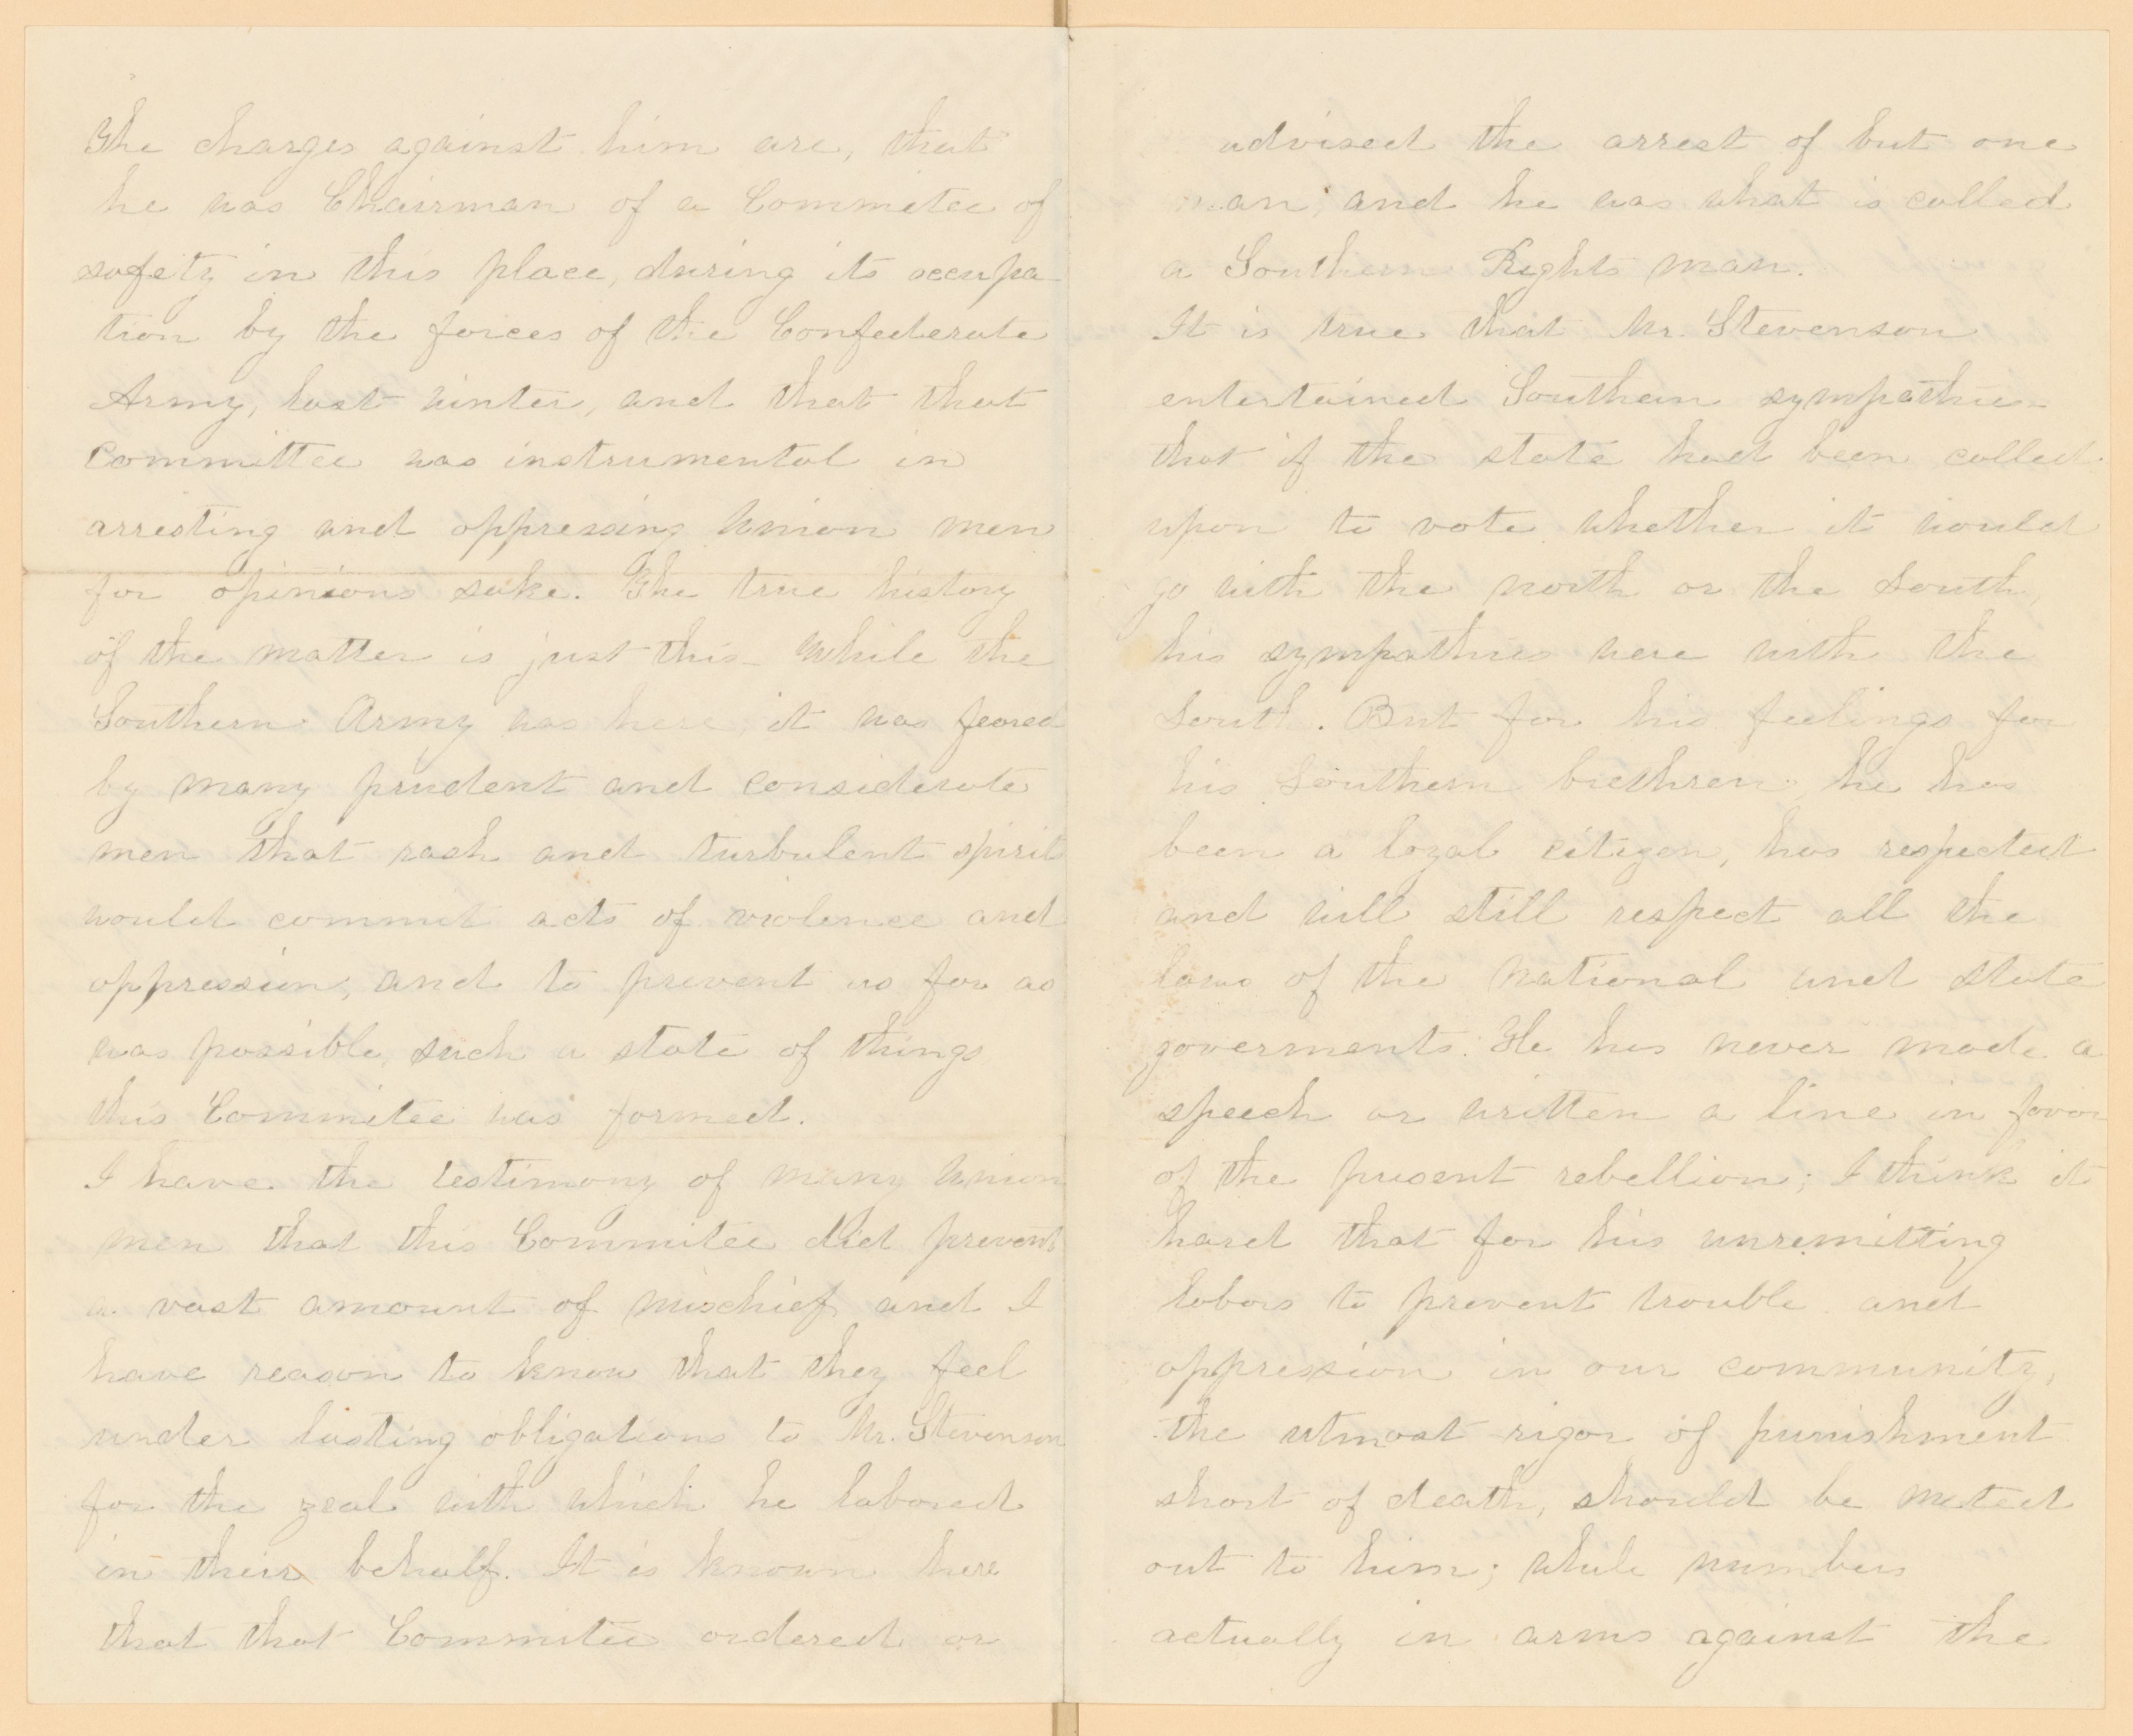 The charges against him are, that
he was Chairman of a Commitee of
safety in this place, during its occupa-
tion by the forces of the Confederate
Army, last winter, and that that
Committee was instrumental in
arresting and oppressing Union men
for opinions sake. The true history
of the matter is just this - While the
Southern Army was here, it was feared
by many prudent and considerate
men that rash and turbulent spirit
would commit acts of violence and
oppression, and to prevent as far as
was possible, such a state of things
this Commitee was formed.
I have the testimony of many Union
men that this Commitee did prevent
a vast amount of mischief and I
have reason to know that they feel
under lasting obligations to Mr. Stevenson
for the zeal with which he labored
in their behalf. It is known here
that that Commitee ordered or
advised the arrest of but one
man, and he was what is called
a Southern Rights man.
It is true that Mr. Stevenson
entertained Southern sympathies -
that if the state had been called
upon to vote whether it would
go with the north or the South,
his sympathies were with the
South. But for his feelings for
his Southern brethren he has
been a loyal citizen, has respected
and will still respect all the
laws of the National and State
goverments. He has never made a
speech or written a line in favor
of the present rebellion; I think it
hard that for his unremitting
labors to prevent trouble and
oppression in our community,
the utmost rigor of punishment
short of death, should be meted
out to him; while numbers
actually in arms against the